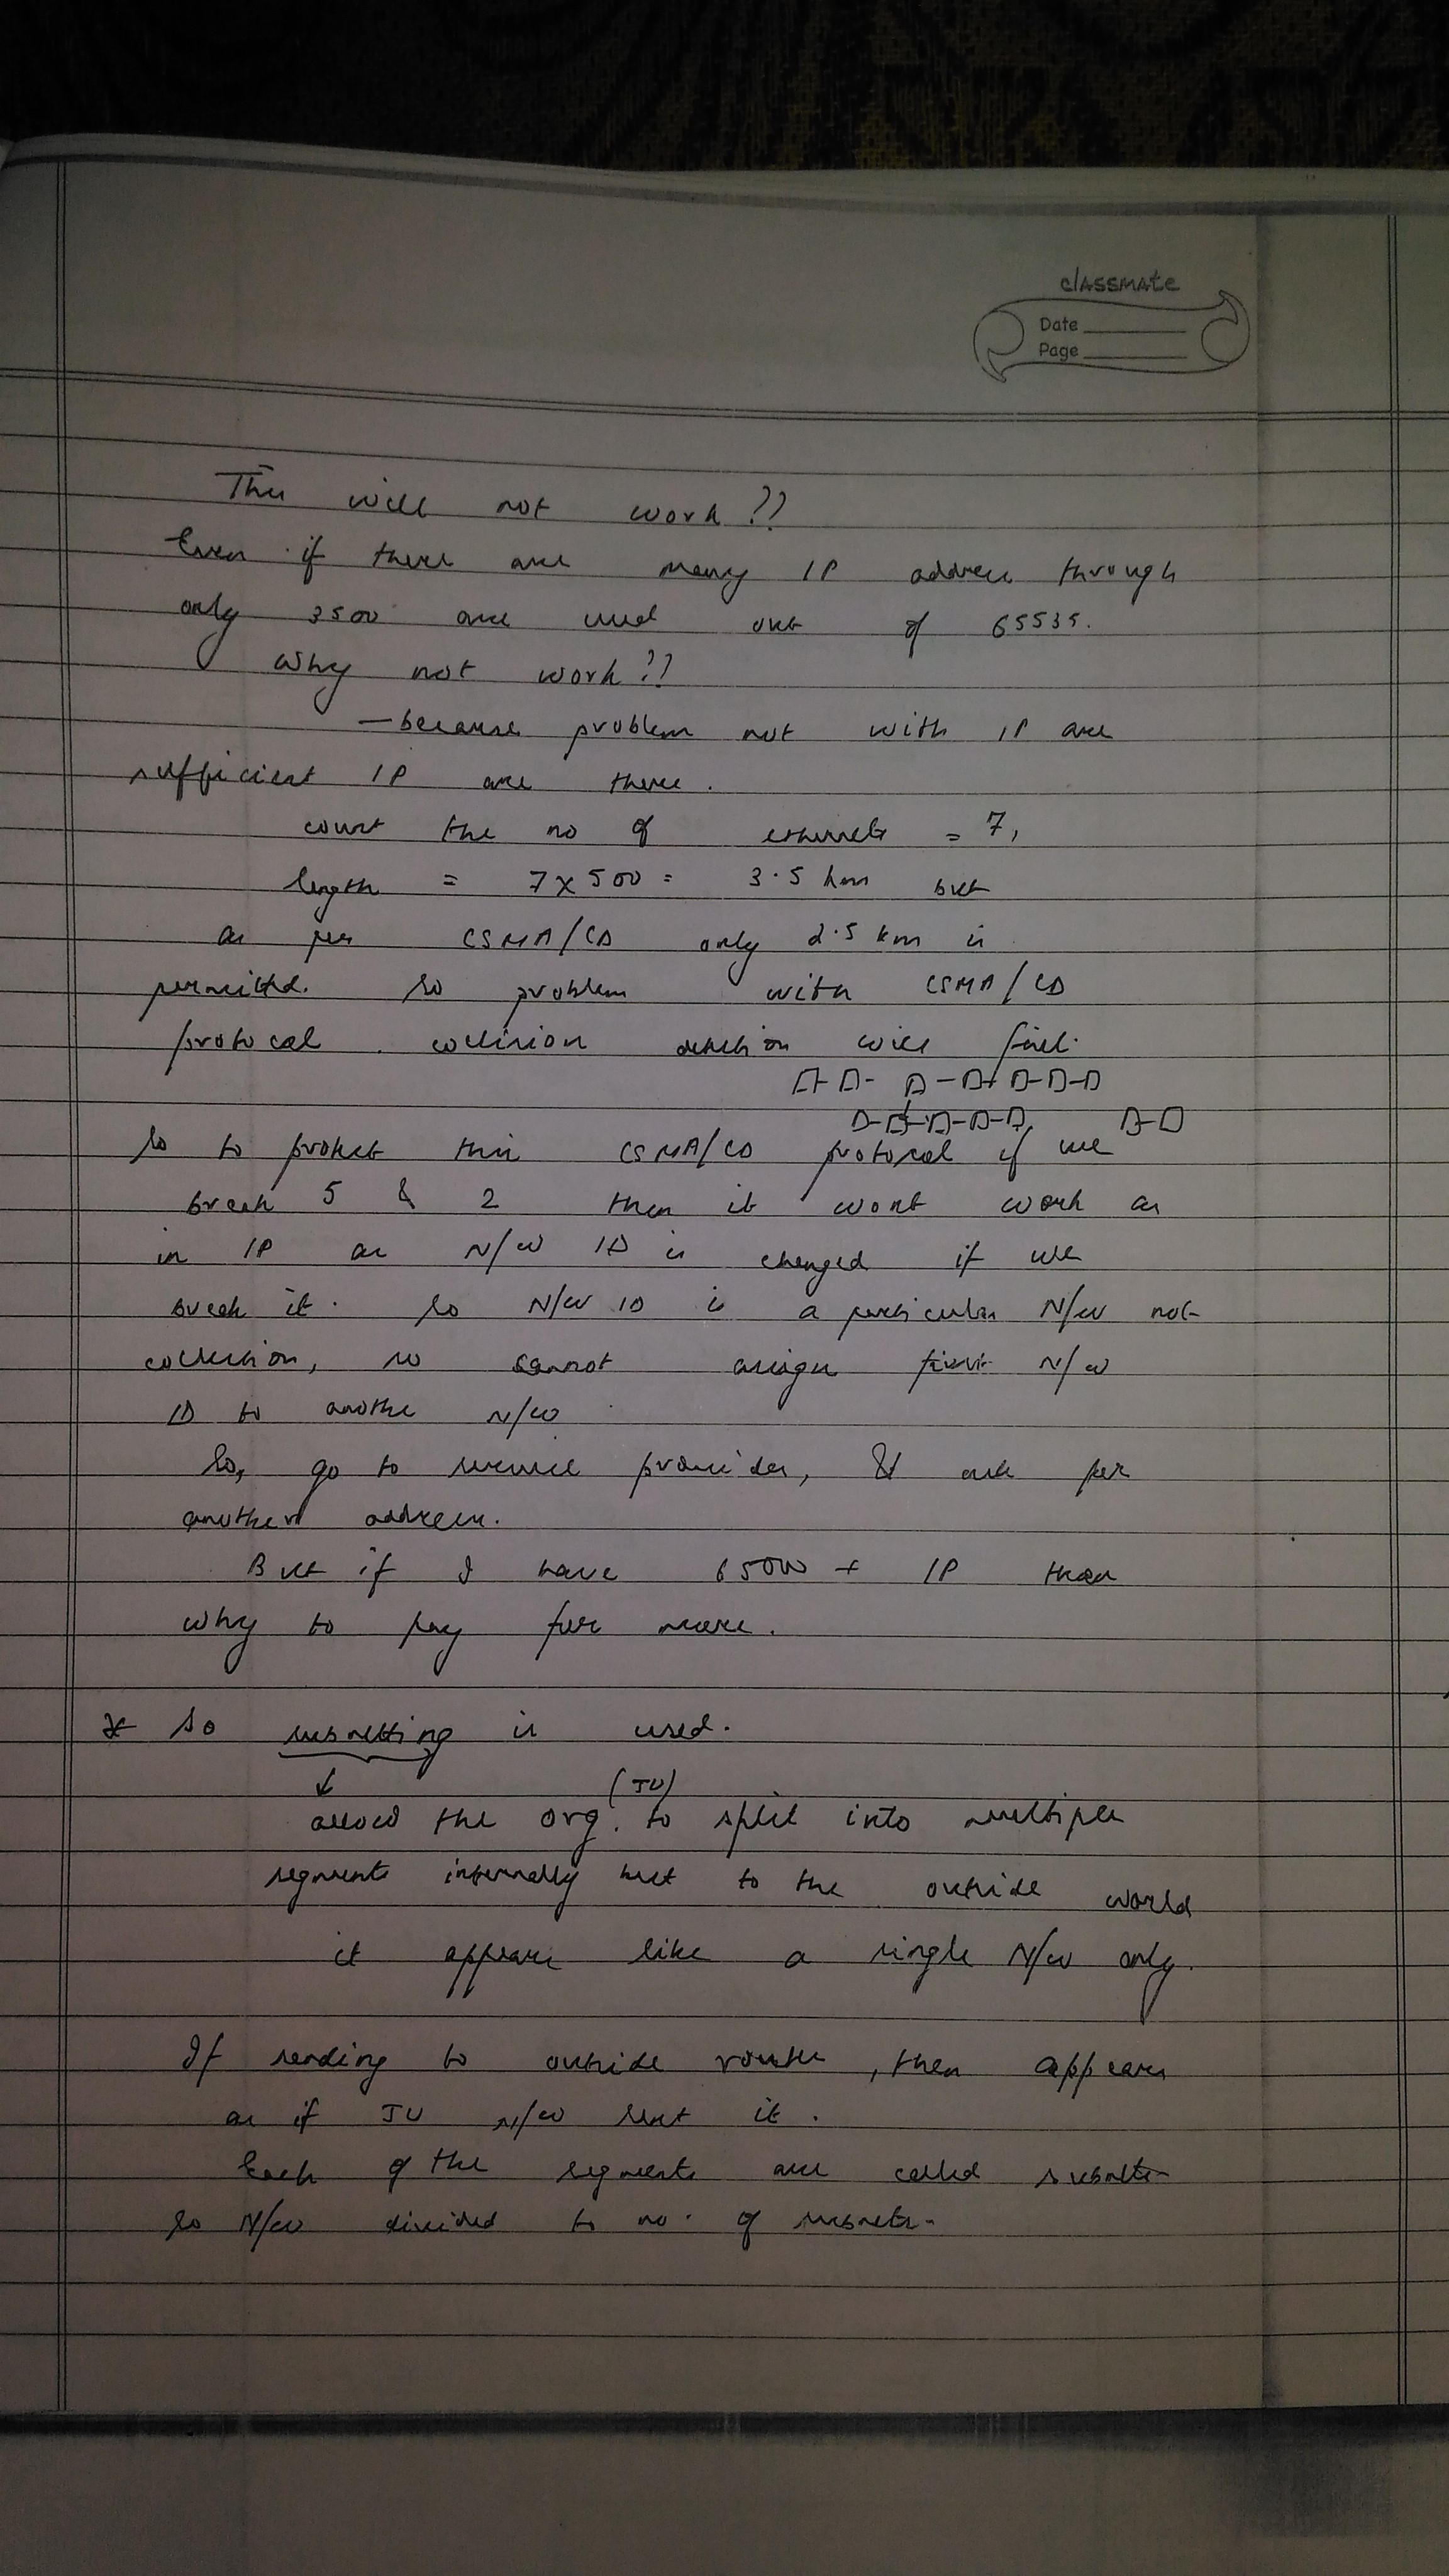 classmate
Date
Page
This will not work ??
Even if there are many IP address through
only 3500 are used out of 65535.
Why not work ??
— because problem not with IP are
sufficient IP are there.
count the no of ethernets = 7,
length = 7 x 500 = 3.5 km but
as per CSMA/CD only 2.5 km is
permitted. So problem with CSMA/CD
protocal. collision detection will fail.
So to protect this CSMA/CD protocal if we
break 5 & 2 then it wont work as
in IP as N/W ID is changed if we
break it. So N/W ID is a particular N/W not
collection, so cannot assign first N/W
ID to another N/W
So, go to service provider, & ask for
another address.
But if I have 6500 + IP then
why to pay for more.
* So subnetting is used.
(JU)
allows the org. to split into multiple
segments internally but to the outside world
it appears like a single N/W only.
If sending to outside router, then appears
as if JU N/W sent it.
Each of the segments are called subnets
So N/W divided to no. of subnets.